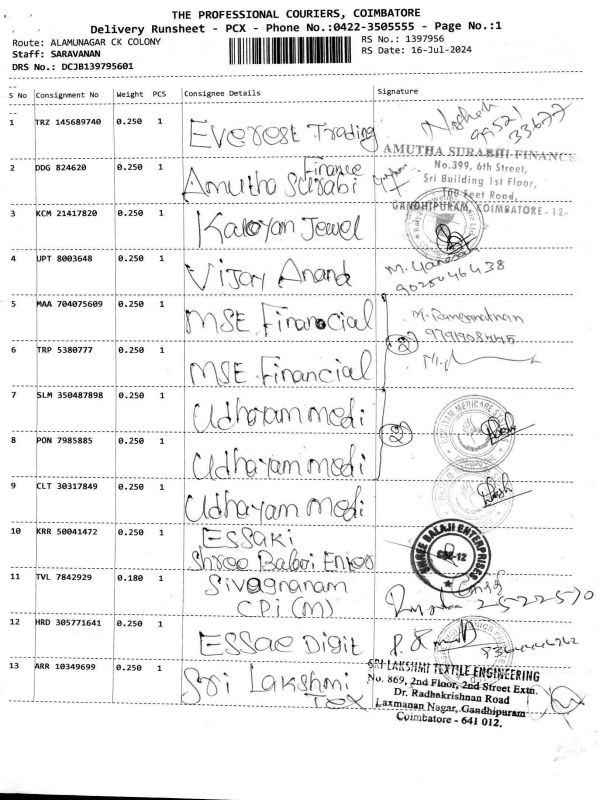 THE PROFESSIONAL COURIERS, COIMBATORE
Delivery Runsheet - PCX - Phone No.:0422-3505555 - Page No.:1
Route: ALAMUNAGAR CK COLONY
RS No.: 1397956
Staff: SARAVANAN
RS Date: 16-Jul-2024
DRS No.: DCJB139795601
S No Consignment No Weight PCS Consignee Details Signature
1 TRZ 145689740 0.250 1 Everest Trading
99521
33677
2 DDG 824620 0.250 1 Amutha Surabi Finance
AMUTHA SURABHI FINANCE
No.399, 6th Street,
Sri Building 1st Floor,
100 Feet Road,
GANDHIPURAM, COIMBATORE - 12
3 KCM 21417820 0.250 1 Kalyan Jewel
4 UPT 8003648 0.250 1 Vijay Anand
5 MAA 704075609 0.250 1 MSE Financial
2
6 TRP 5380777 0.250 1 MSE Financial
7 SLM 350487898 0.250 1 Udhayam medi
2
8 PON 7985885 0.250 1 Udhayam medi
9 CLT 30317849 0.250 1 Udhayam medi
10 KRR 50041472 0.250 1 Essaki
Shree Balaji Enter
SHREE BALAJI ENTERPRISES
CBE-12
11 TVL 7842929 0.180 1 Sivagnanam
CPI (M) 2522570
12 HRD 305771641 0.250 1 Essae Digit
13 ARR 10349699 0.250 1 Sri Lakshmi
Tex
SRI LAKSHMI TEXTILE ENGINEERING
No. 869, 2nd Floor, 2nd Street Extn.
Dr. Radhakrishnan Road
Laxmanan Nagar, Gandhipuram
Coimbatore - 641 012.